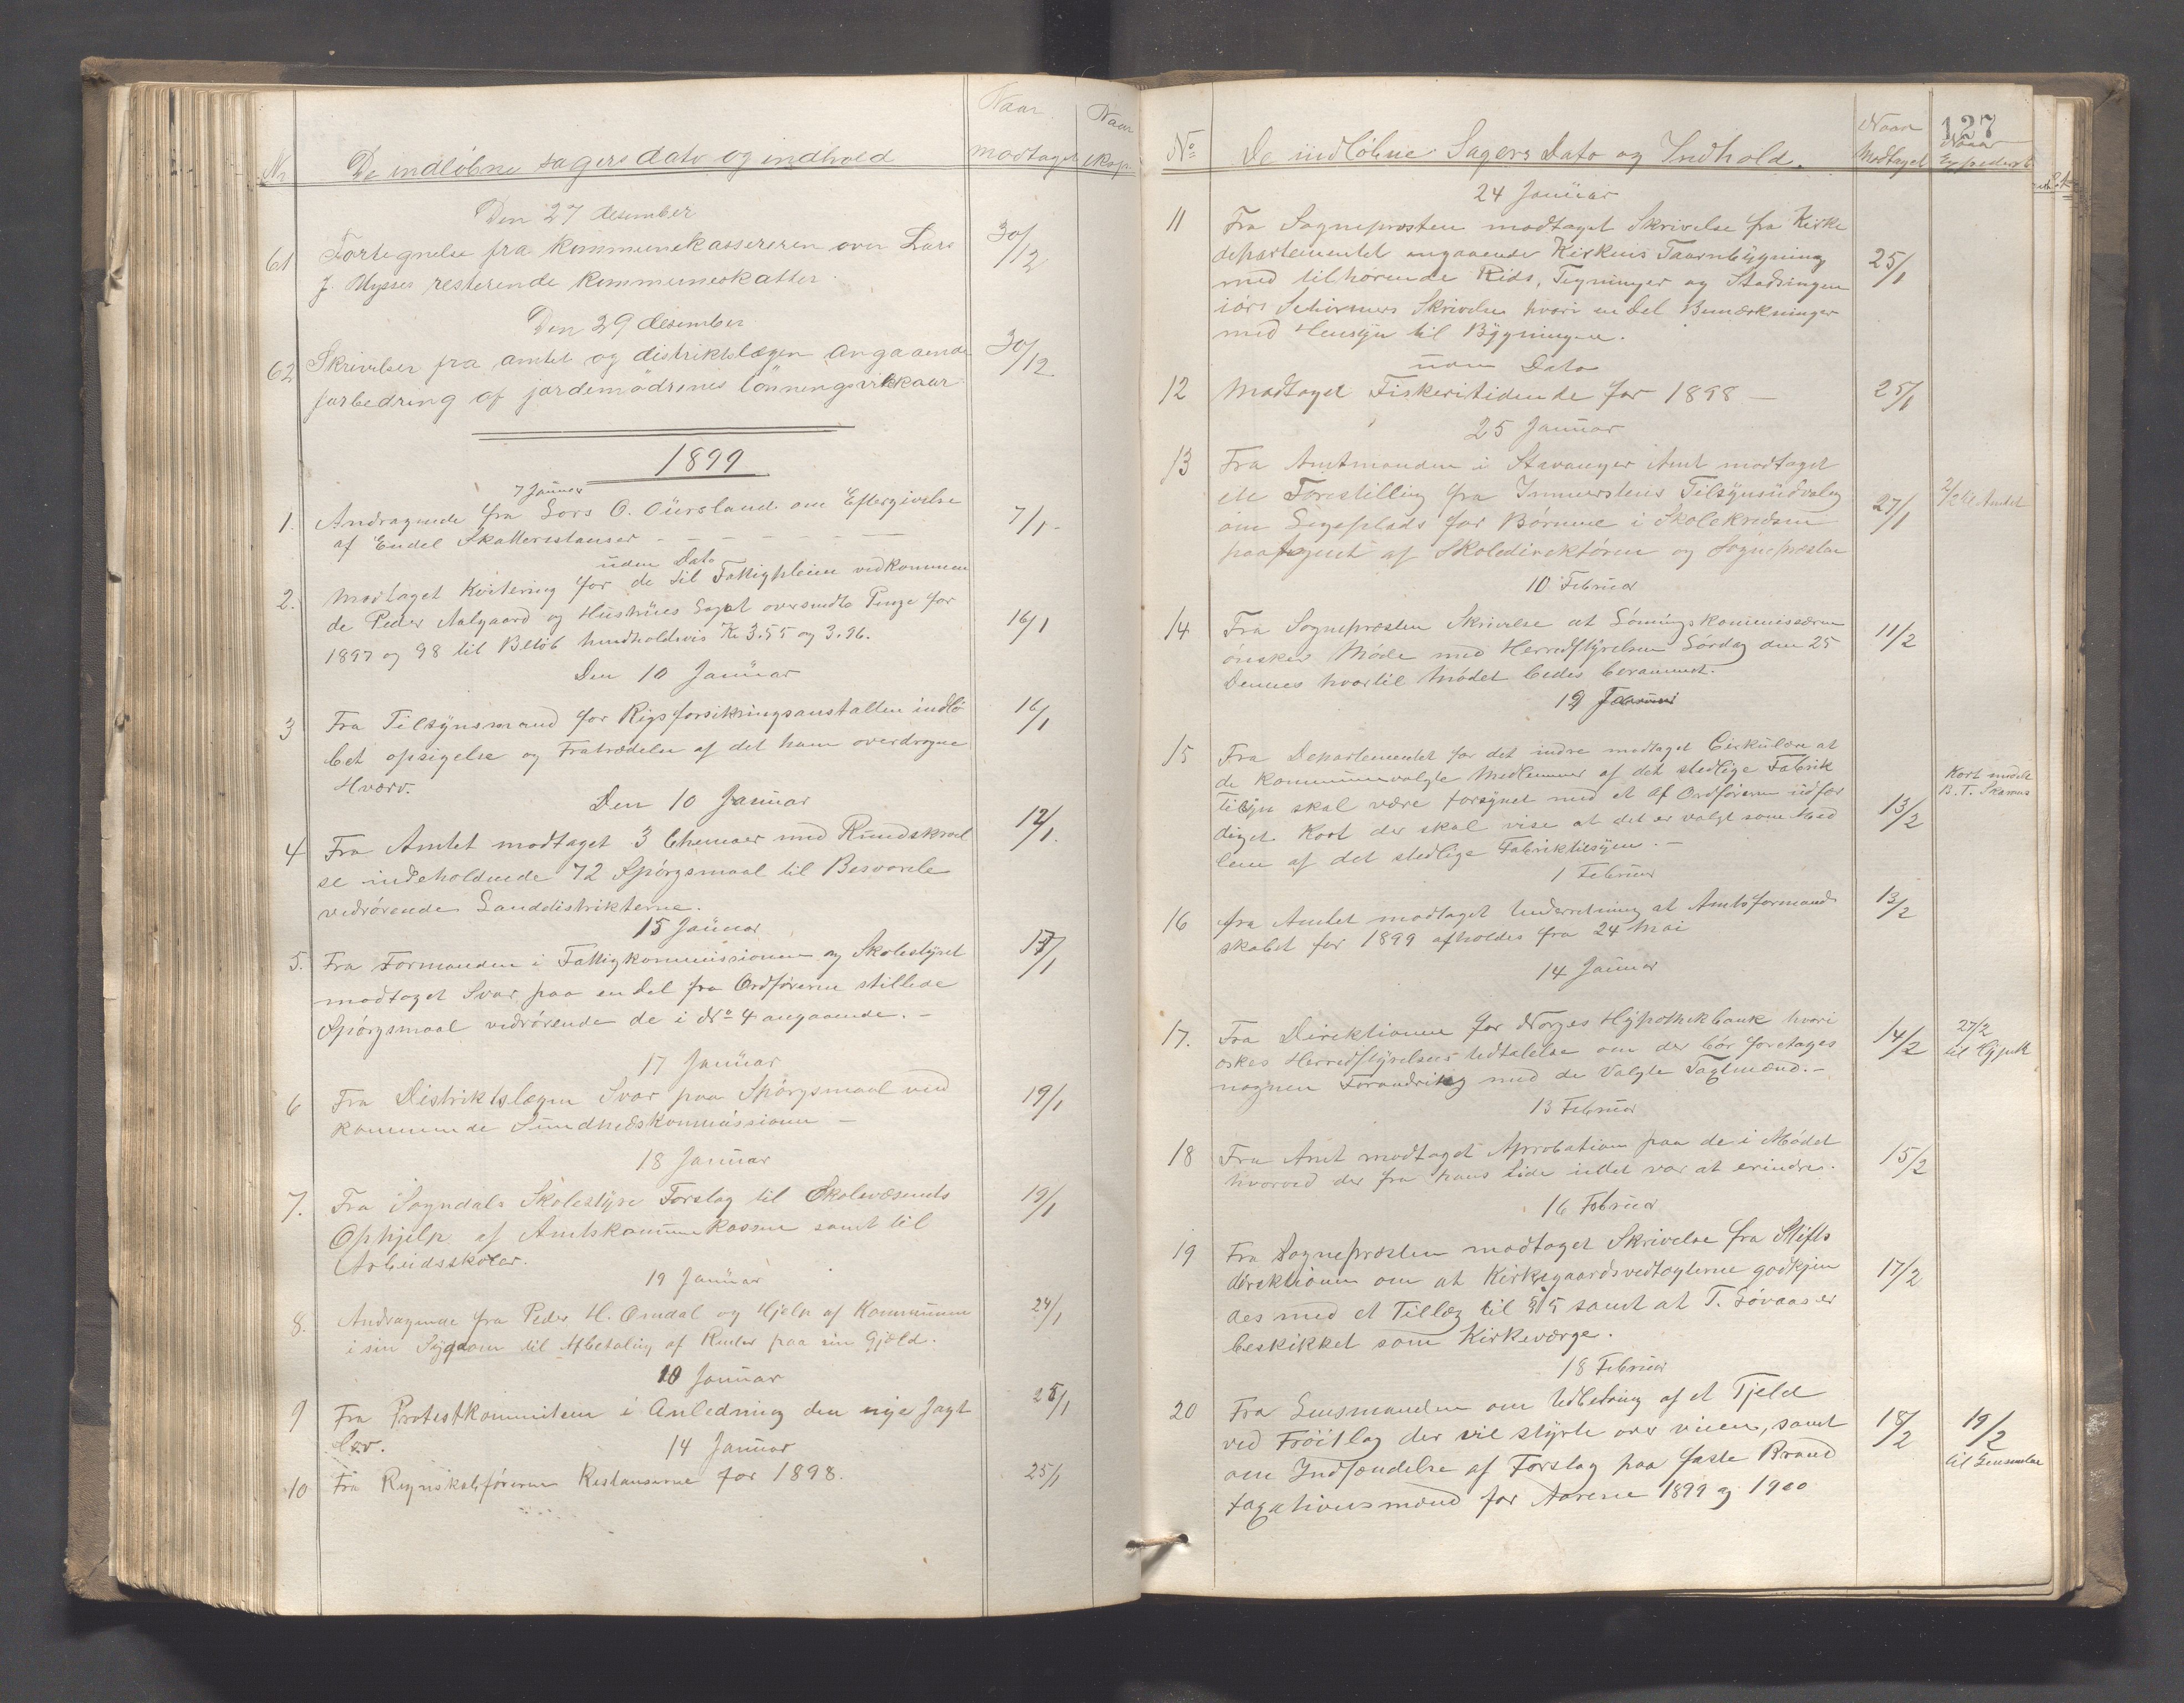 Naar
Naar
Nr De indløbne sagers dato og indhold modtaget eksp.
Den 27 desember
61 Fortegnelse fra kommunekassereren over Lars 30/12
J. resterende kommuneskatter.
Den 29 desember
62 Skrivelser fra amtet og distriktslægen angaaende 30/12
forbedring af jordemødrenes lønningsvilkaar
1899
7 Januar
1. Andragende fra Lars O. om Eftergivelse 7/1
af Endel Skatterestanser
uden Dato
2. Modtaget Kvitering for de til Fattigpleien vedkommen
de Peder Aalgaard og oversendte Penge for 16/1
1897 og 98 til Beløb henholdsvis Kr 3.55 og 3.96.
Den 10 Januar
3 Fra Tilsynsmand for Rigsforsikringsanstalten indlø 16/1
bet opsigelse og Fratrædelse af det ham overdragne
Hværv.
Den 10 Januar
4 Fra Amtet modtaget 3 Chemaer med Rundskrivel 12/1.
se indeholdende 72 Spørgsmaal til Besvarelse
vedrørende Landdistrikterne.
15 Januar
5. Fra Formanden i Fattigkommissionen og Skolestyret 17/1
modtaget Svar paa en del fra Ordføreren stillede
Spørgsmaal vedrørende de i No 4 angaaende. –
17 Januar
6 Fra Distriktslægen Svar paa Spørgsmaal ved 19/1
kommende Sundhedskommissionen –
18 Januar
7. Fra Sogndals Skolestyre Forslag til Skolevæsenets 19/1
Ophjelp af Amtskommunekassen samt til
Arbeidsskoler.
19 Januar
8. Andragende fra Peder H. Omdal og Hjelp af Kommunen 24/1
i sin Sygdom til Afbetaling af Renter paa sin Gjæld.
10 Januar
9 Fra Protestkommiteen i Anledning den nye Jagt 25/1
lov.
14 Januar
10 Fra Regnskabsføreren Restanserne for 1898. 25/1
127
Naar Naar
No De indløbne Sagers Dato og Indhold. Modtaget Expederet
24 Januar
11 Fra Sognepresten modtaget Skrivelse fra Kirke
departementet angaaende Kirkens Taarnbygning 25/1
med tilhørende Rids, Tegninger og Stadsingen
iør Schirmers Skrivelse hvori en Del Bemærkninger
med Hensyn til Bygningen.
uden Dato
12 Modtaget Fiskeritidende for 1898 – 25/1
25 Januar
13 Fra Amtmanden i Stavanger Amt modtaget
ete Forestilling fra Tilsynsudvalg 2/2 til Amtet
om Legeplads for Børnene i Skolekredsen 27/1
paategnet af Skoledirektøren og Sognepresten
10 Februar
14 Fra Sognepresten Skrivelse at Lønningskommissæren 11/2
ønsker Møde med Herredstyrelsen Lørdag den 25
Dennes hvortil Mødet bedes berammet.
15 Fra Departementet for det indre modtaget Cirkulære at
de kommunevalgte Medlemmer af det stedlige Fabrik Kort meddelt
tilsyn skal være forsynet med et af Ordføreren udfær B. T.
diget Kort der skal vise at det er valgt som Med 13/2
lem af det stedlige Fabriktilsyn. –
1 Februar
16 fra Amtet modtaget Underretning at Amtsformand 13/2
skabet for 1899 afholdes fra 24 Mai
14 Januar
17. Fra Direktionen for Norges Hypothekbank hvori 14/2 27/2
øskes Herredstyrelsens Udtalelse om der bør foretages til Hypotk
nogen Forandring med de Valgte Taxtmænd. –
13 Februar
18 Fra Amt modtaget Aprobation paa de i Mødet 15/2
hvorved der fra hans Side intet var at erindre.
16 Februar
19 Fra Sognepresten modtaget Skrivelse fra Stifts
direktionen om at Kirkegaardsvedtægterne godkjen 17/2
des med et Tillæg til § 5 samt at T. er
beskikket som Kirkeværge.
18 Februar
20 Fra Lensmanden om Udbedring af et Fjeld
ved Frøitlag der vil styrte over veien, samt 18/2 19/2
om Indsendelse af Forslag paa faste Brand til Lensmanden
taxationsmænd for Aarene 1899 og 1900